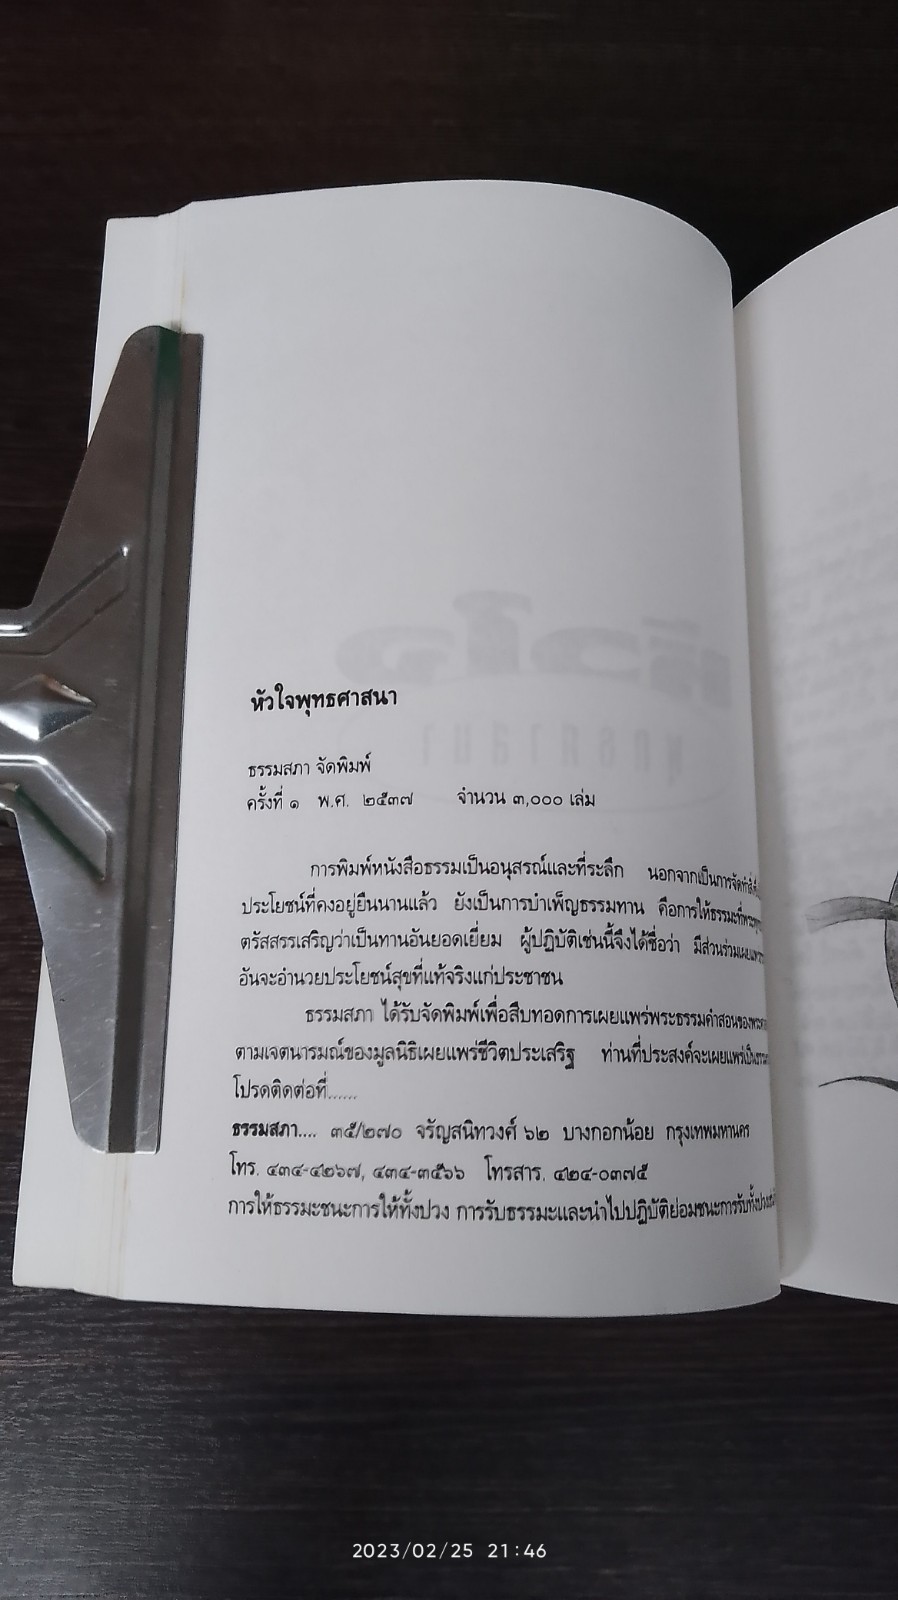 หัวใจพุทธศาสนา
ธรรมสภา จัดพิมพ์
ครั้งที่ ๑ พ.ศ. ๒๕๓๗ จำนวน ๓,๐๐๐ เล่ม
การพิมพ์หนังสือธรรมเป็นอนุสรณ์และที่ระลึก นอกจากเป็นการจัดทำสิ่ง
ประโยชน์ที่คงอยู่ยืนนานแล้ว ยังเป็นการบำเพ็ญธรรมทาน คือการให้ธรรมะที่พระพุทธ
ตรัสสรรเสริญว่าเป็นทานอันยอดเยี่ยม ผู้ปฏิบัติเช่นนี้จึงได้ชื่อว่า มีส่วนร่วมเผยแพร่
อันจะอำนวยประโยชน์สุขที่แท้จริงแก่ประชาชน
ธรรมสภา ได้รับจัดพิมพ์เพื่อสืบทอดการเผยแพร่พระธรรมคำสอนของพระ
ตามเจตนารมณ์ของมูลนิธิเผยแพร่ชีวิตประเสริฐ ท่านที่ประสงค์จะเผยแพร่เป็นธรรม
โปรดติดต่อที่......
ธรรมสภา.... ๓๕/๒๗๐ จรัญสนิทวงศ์ ๖๒ บางกอกน้อย กรุงเทพมหานคร
โทร. ๔๓๔-๔๒๖๗, ๔๓๔-๓๕๖๖ โทรสาร. ๔๒๔-๐๓๗๕
การให้ธรรมะชนะการให้ทั้งปวง การรับธรรมะและนำไปปฏิบัติย่อมชนะการรับทั้งปวง
2023/02/25 21:46